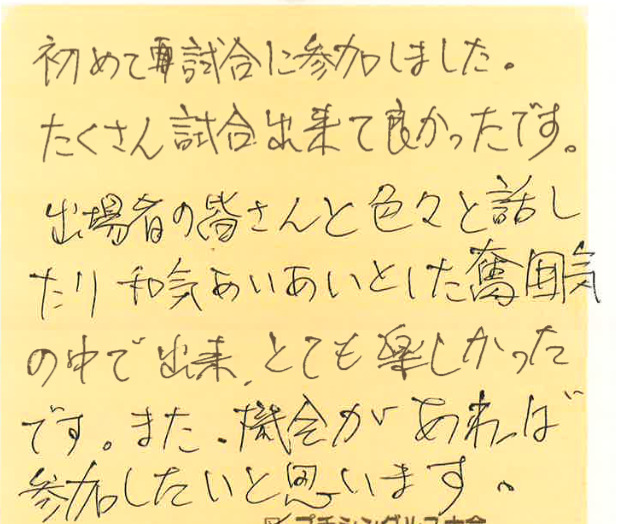 初めて試合に参加しました。
たくさん試合出来て良かったです。
出場者の皆さんと色々と話し
たり和気あいあいとした奮囲気
の中で出来、とても楽しかった
です。また、機会があれば
参加したいと思います。
プチシングルス大会